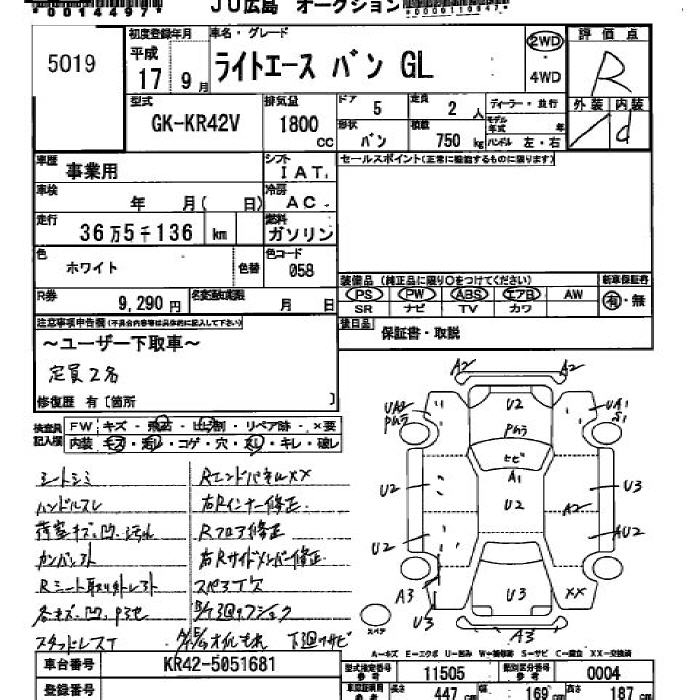 *0014497*
JU広島 オークション
5019
初度登録年月
平成
17 9月
車名・グレード
ライトエース バン GL
2WD
・
4WD
評価点
R
外装 内装
d
型式
GK-KR42V
排気量
1800
cc
ドア 5
形状
バン
定員 2 人
積載
750 kg
ディーラー・並行
モデル年式 年
ハンドル 左・右
車歴
事業用
シフト
IAT.
セールスポイント(正常に機能するものに限ります)
車検
年 月( 日)
冷房
AC
走行
36万5千136 km
燃料
ガソリン
色
ホワイト
色替
色コード
058
R券
9,290円
名変期限
月 日
装備品 (純正品に限り○をつけてください)
PS PW ABS エアB AW
SR ナビ TV カワ
新車保証書
有・無
後日品
保証書・取説
注意事項申告欄(不具合内容等は具体的に記入して下さい)
～ユーザー下取車～
定員2名
修復歴 有〔箇所 〕
検査員記入欄
FW キズ・飛石・ヒビ割・リペア跡・×要
内装 キズ・汚れ・コゲ・穴・スレ・キレ・破レ
シートシミ
ハンドルスレ
荷室キズ.凹.汚れ
Rエンドパネルxx
右Rインナー修正
Rフロア修正
右Rサイドメンバー修正
スペアタ欠
各キズ.凹
スタッドレスT
オイルもれ
下廻サビ
A2 A2
UA2
U2
UA1
S1
ヒビ
A1
U2
U2
U3
A2
AU2
U2
A3
U3
U3
XX
A3
スペア
A-キズ E-エクボ U-凹み W-補修跡 S-サビ C-腐食 XX-交換済
車台番号
KR42-5051681
型式指定番号
参考
11505
類別区分番号
参考
0004
登録番号
長さ
447 cm
幅
169 cm
高さ
187 cm